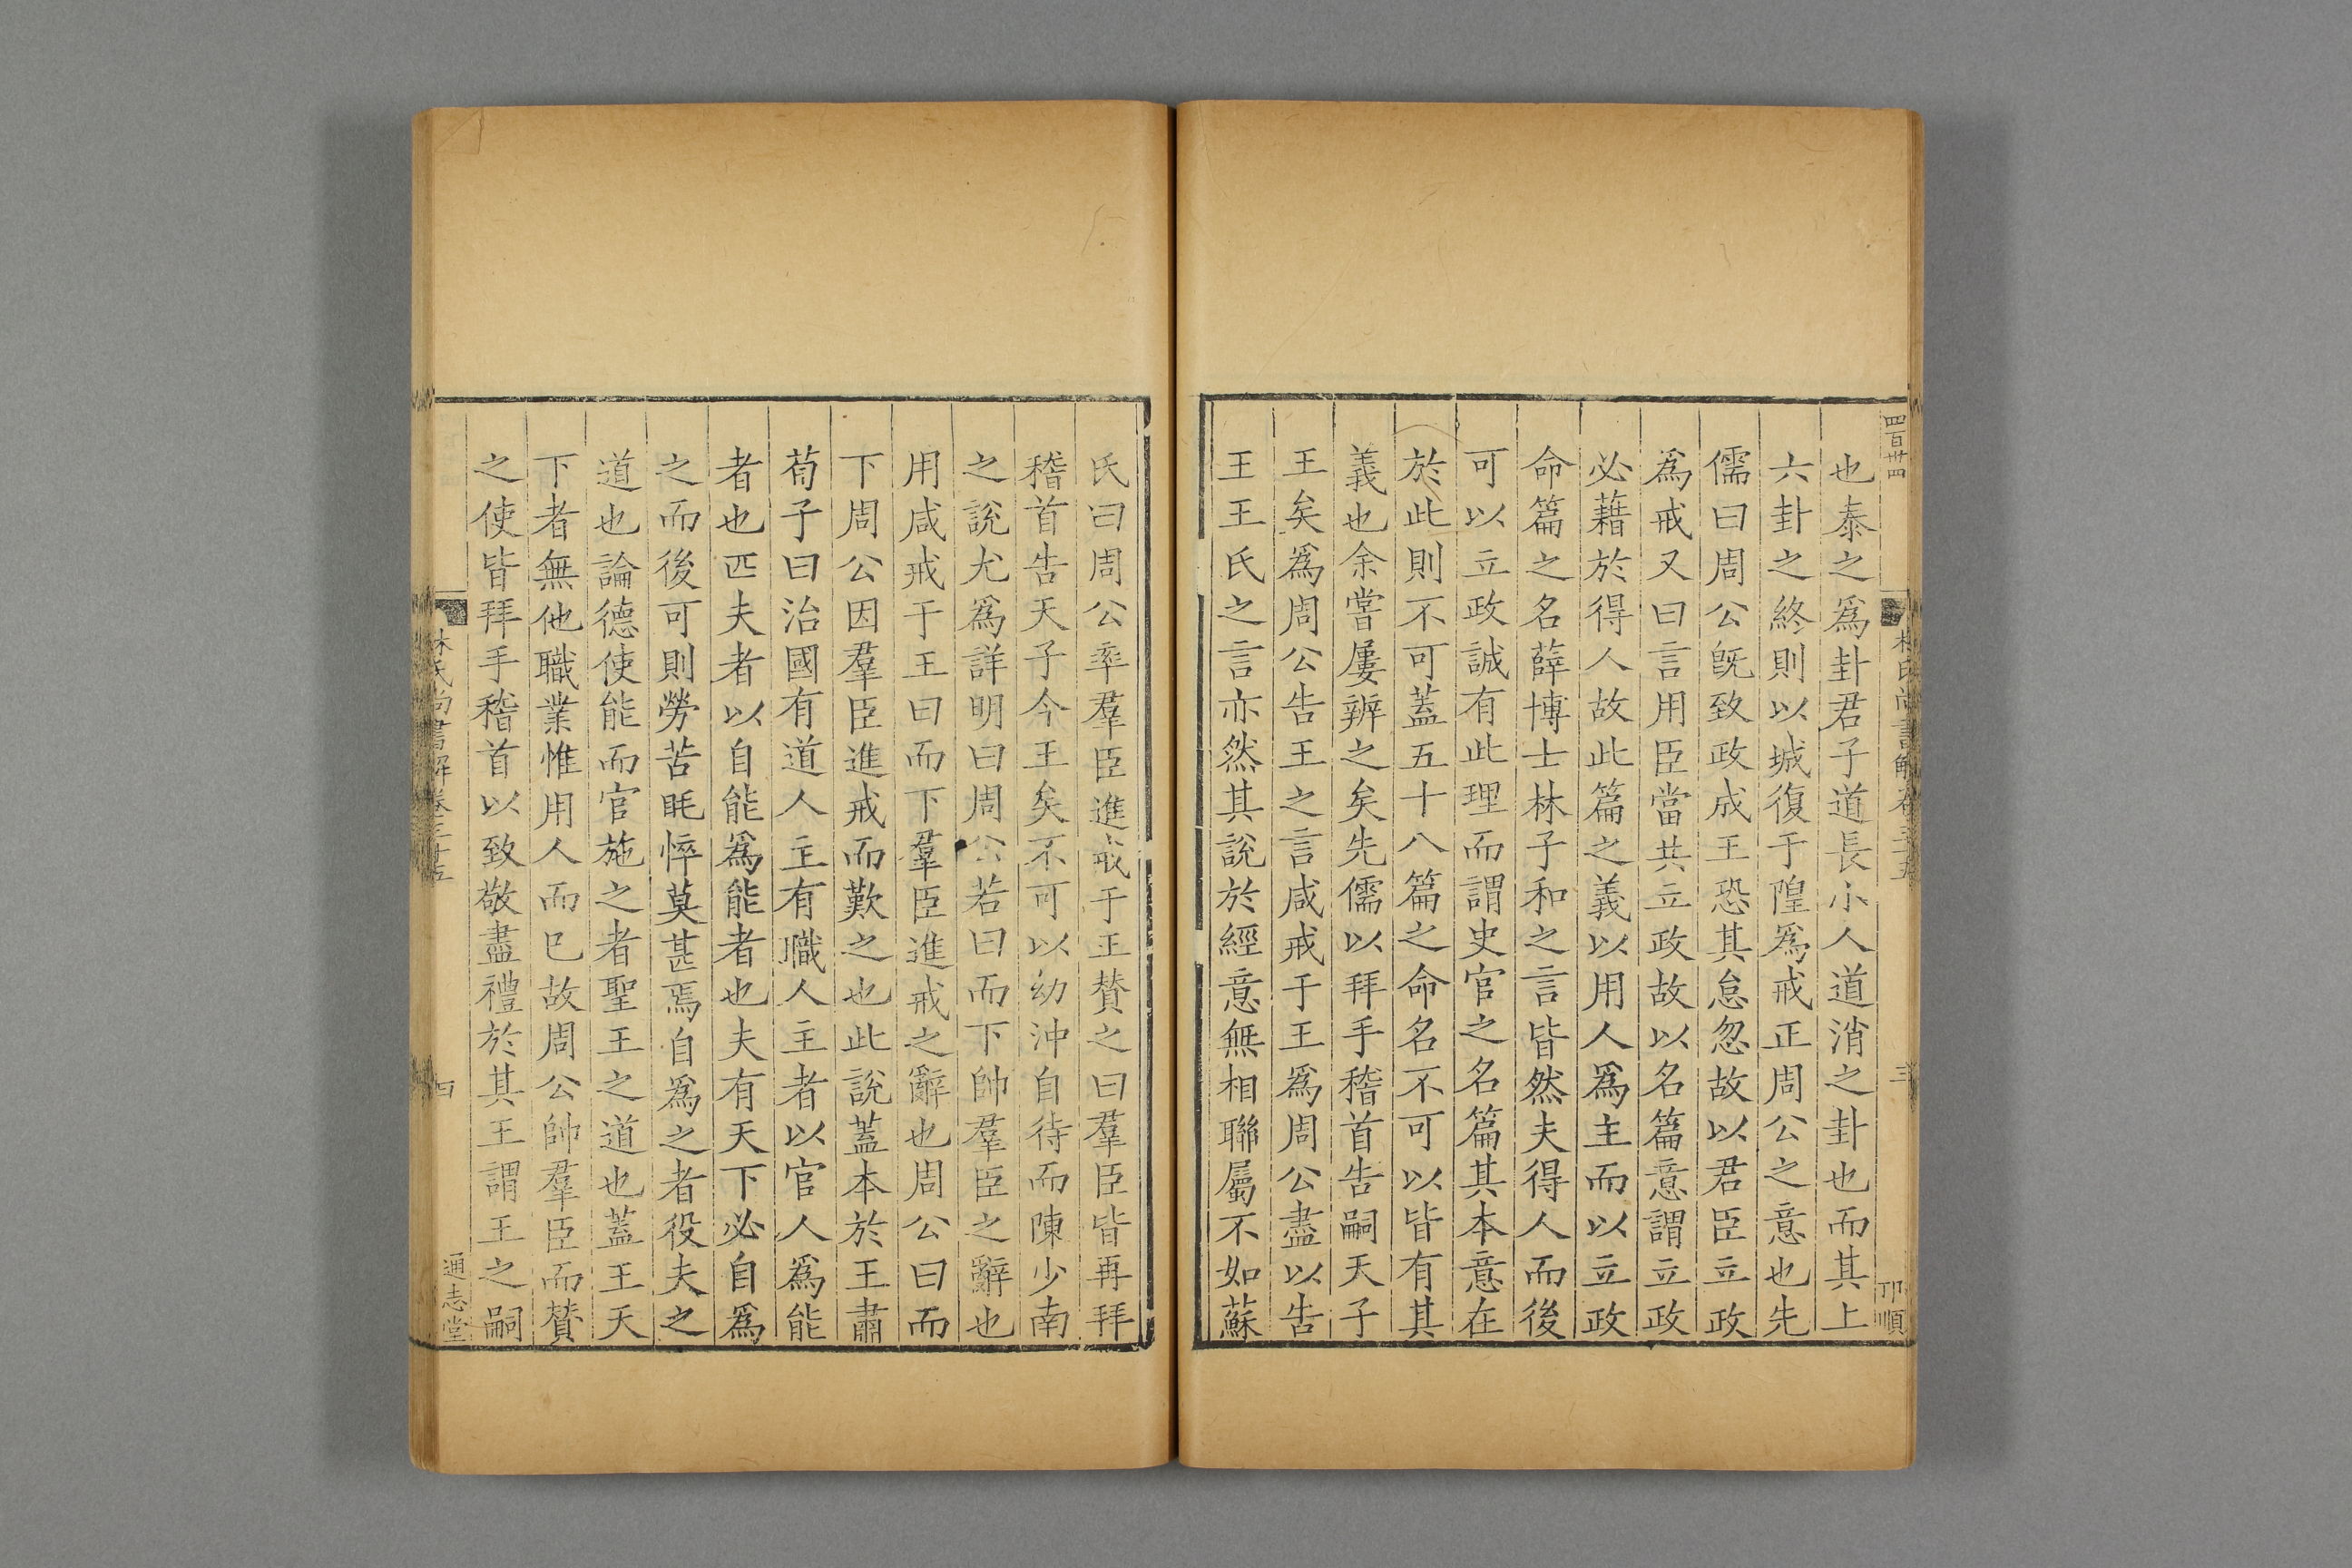 也泰之爲卦君子道長小人道消之卦也而其上
六卦之終則以城復于隍爲戒正周公之意也先
儒曰周公旣致政成王恐其怠忽故以君臣立政
爲戒又曰言用臣當共立政故以名篇意謂立政
必藉於得人故此篇之義以用人爲主而以立政
命篇之名薛博士林子和之言皆然夫得人而後
可以立政誠有此理而謂史官之名篇其本意在
於此則不可蓋五十八篇之命名不可以皆有其
義也余嘗屢辨之矣先儒以拜手稽首告嗣天子
王矣爲周公告王之言咸戒于王爲周公盡以告
王王氏之言亦然其說於經意無相聯屬不如蘇
林氏尚書解卷三十五
三
卭順
氏曰周公率羣臣進戒于王贊之曰羣臣皆再拜
稽首告天子今王矣不可以幼沖自待而陳少南
之說尤爲詳明曰周公若曰而下帥羣臣之辭也
用咸戒于王曰而下羣臣進戒之辭也周公曰而
下周公因羣臣進戒而歎之也此說蓋本於王肅
荀子曰治國有道人主有職人主者以官人爲能
者也匹夫者以自能爲能者也夫有天下必自爲
之而後可則勞苦眊悴莫甚焉自爲之者役夫之
道也論德使能而官施之者聖王之道也蓋王天
下者無他職業惟用人而已故周公帥羣臣而贊
之使皆拜手稽首以致敬盡禮於其王謂王之嗣
林氏尚書解卷三十五
四
通志堂